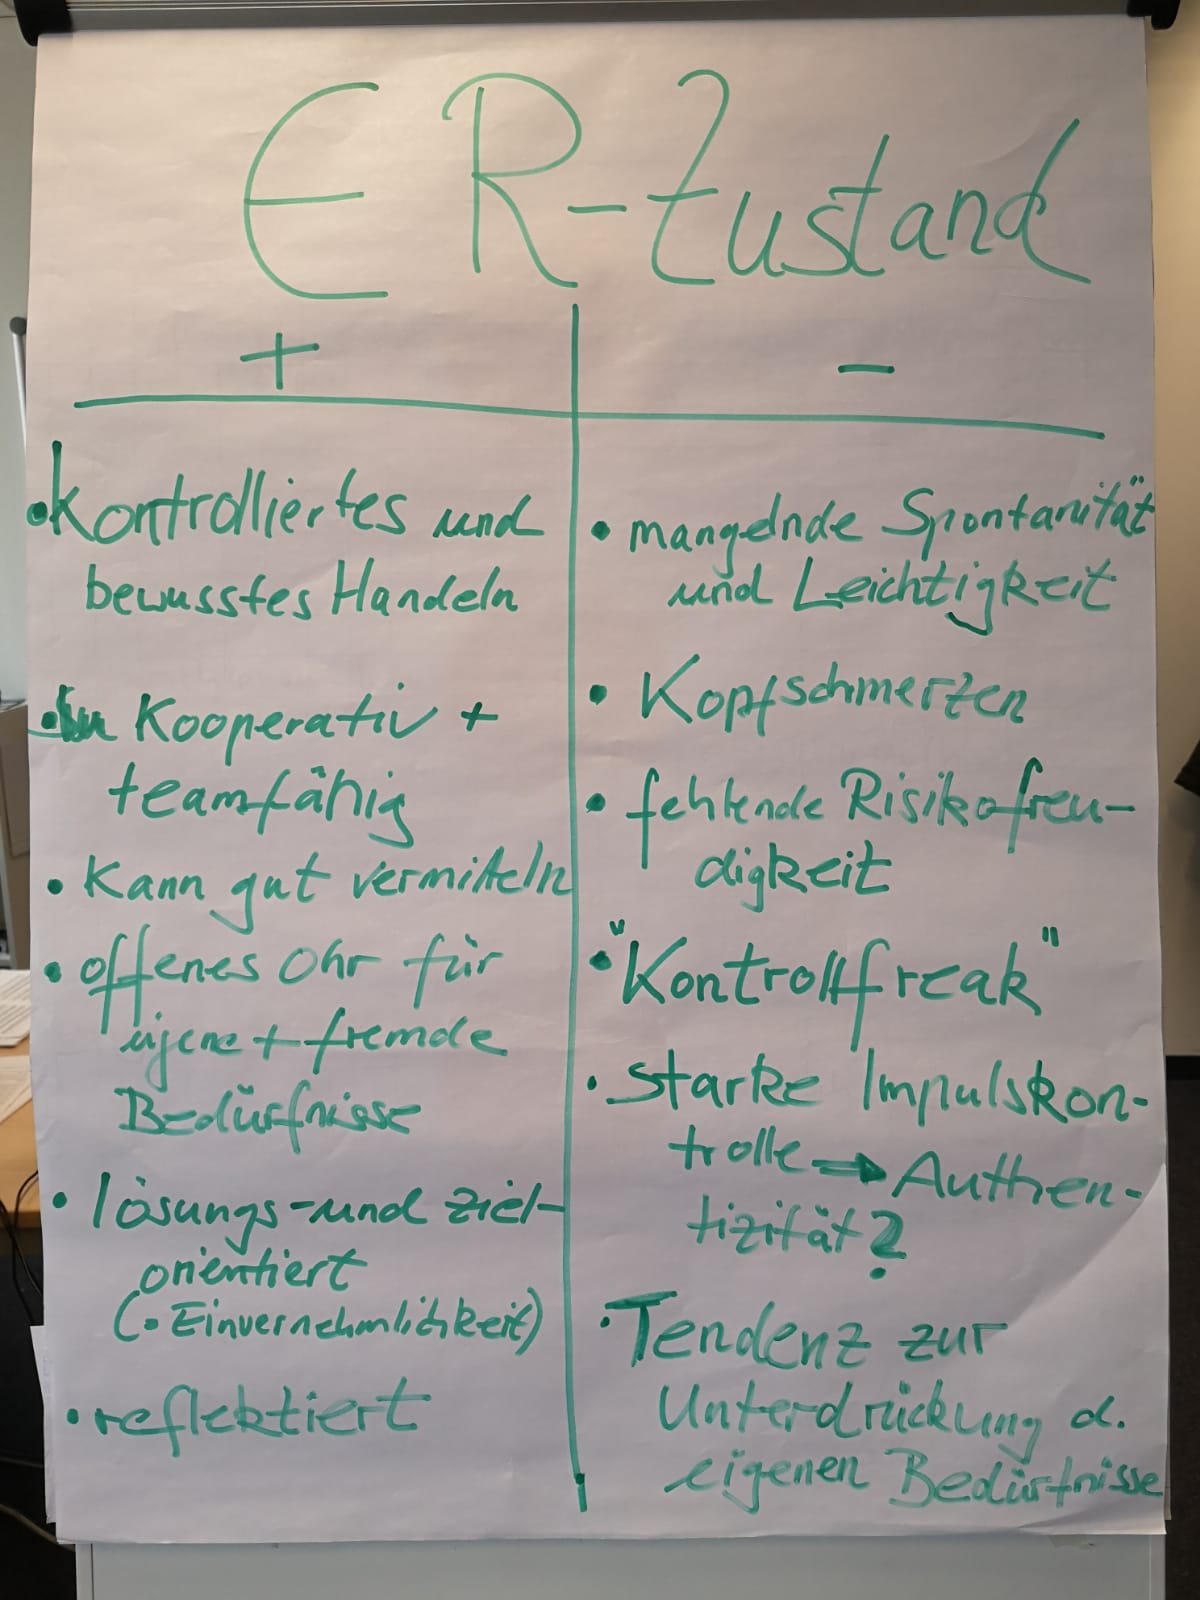 ER-Zustand
+
• Kontrolliertes und
bewusstes Handeln
• Kooperativ +
teamfähig
• Kann gut vermitteln
• offenes Ohr für
eigene + fremde
Bedürfnisse
• lösungs- und ziel-
orientiert
(• Einvernehmlichkeit)
• reflektiert
–
• mangelnde Spontanität
und Leichtigkeit
• Kopfschmerzen
• fehlende Risikofreu-
digkeit
• "Kontrollfreak"
• starke Impulskon-
trolle → Authen-
tizität?
• Tendenz zur
Unterdrückung d.
eigenen Bedürfnisse